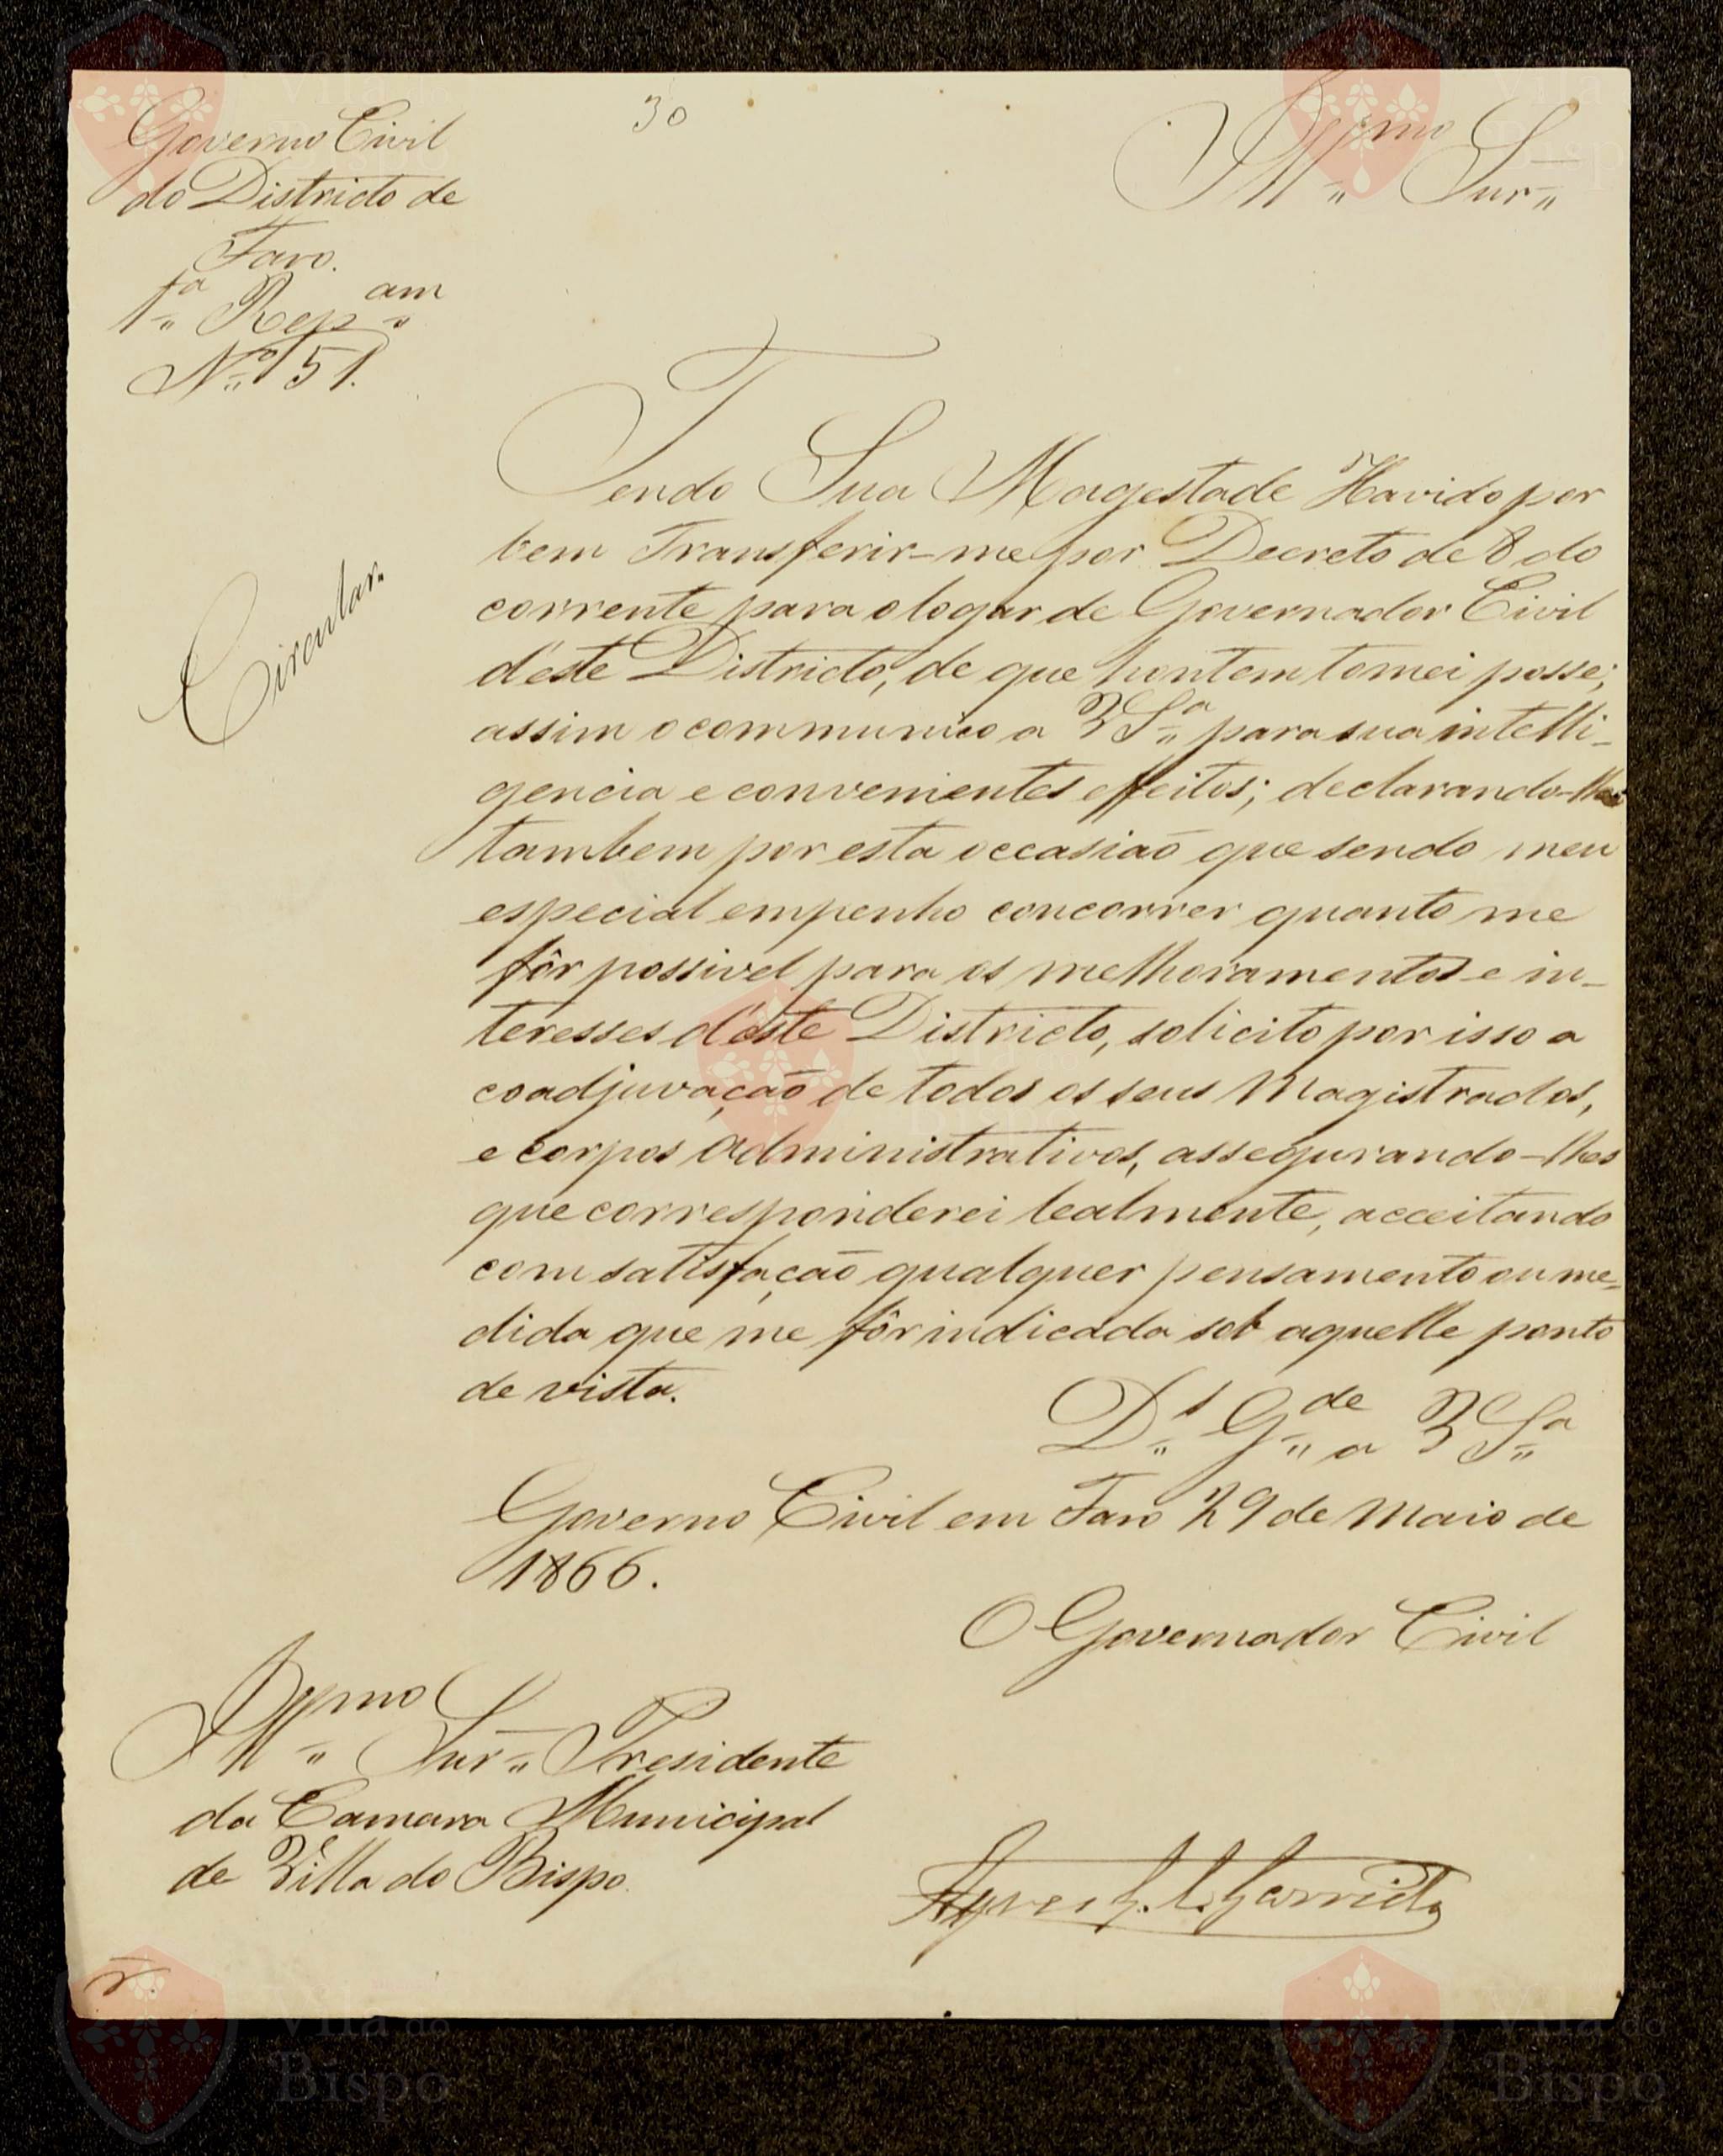 Governo Civil
do Districto de
Faro.
1.ª Rep.am
N.º 51.
30
Ill.mo Snr.
Circular.
Tendo Sua Magestade Havido por
bem Transferir-me por Decreto de 8 do
corrente para o logar de Governador Civil
d'este Districto, de que hontem tomei posse;
assim o communico a V S.ª para sua intelli-
gencia e convenientes effeitos; declarando-lhe
tambem por esta occasião que sendo meu
especial empenho concorrer quanto me
fôr possivel para os melhoramentos e in-
teresses d'este Districto, solicito por isso a
coadjuvação de todos os seus Magistrados,
e corpos administrativos, assegurando-lhes
que corresponderei lealmente, acceitando
com satisfação qualquer pensamento ou me-
dida que me fôr indicada sob aquelle ponto
de vista.
D.s G.de a V S.ª
Governo Civil em Faro 29 de Maio de
1866.
O Governador Civil
Ill.mo Snr. Presidente
da Camara Municipal
de Villa do Bispo.
Garrido
Vila do
Bispo
Vila do
Bispo